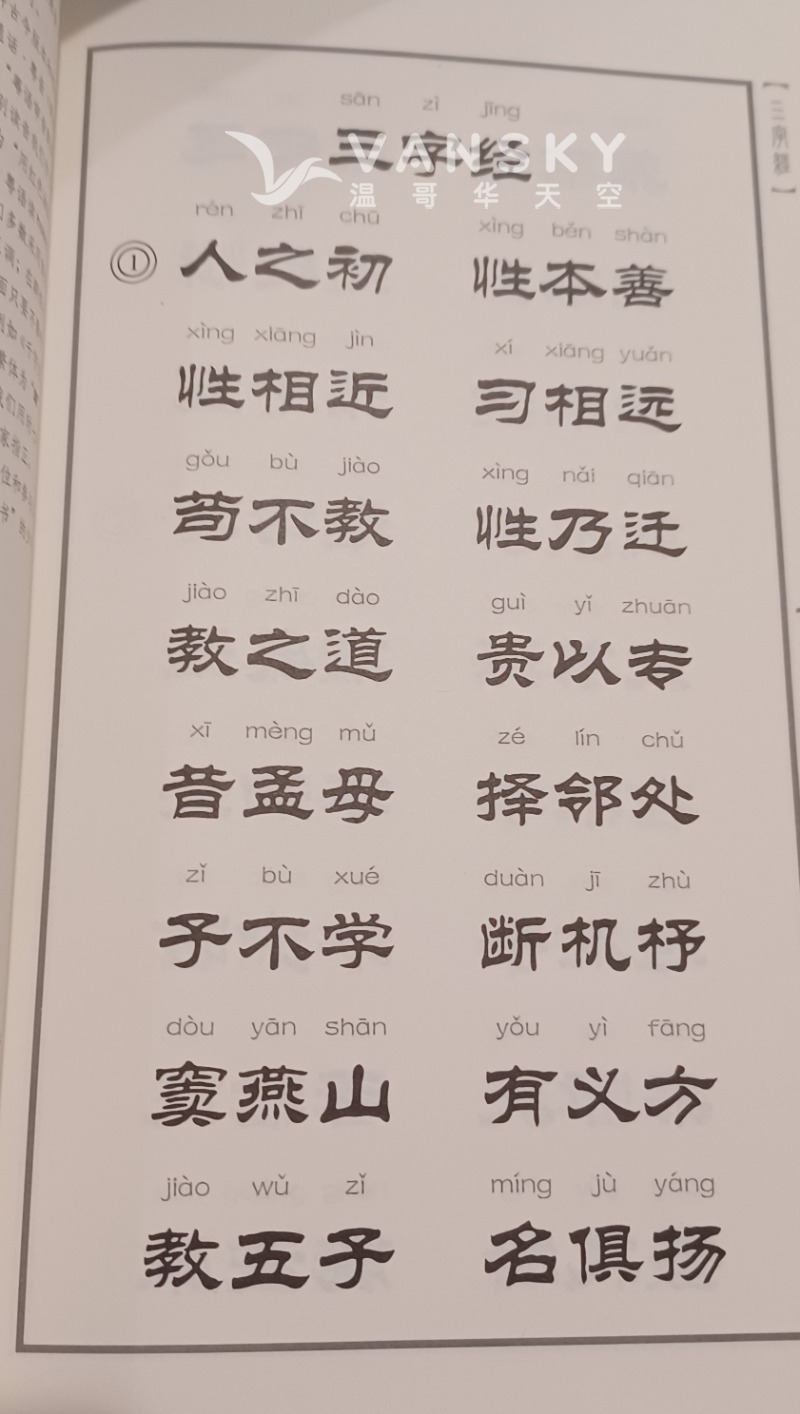 sān zì jīng
三字经
VANSKY
温哥华天空
【三字经】
rén zhī chū xìng běn shàn
① 人之初 性本善
xìng xiāng jìn xí xiāng yuǎn
性相近 习相远
gǒu bù jiào xìng nǎi qiān
苟不教 性乃迁
jiào zhī dào guì yǐ zhuān
教之道 贵以专
xī mèng mǔ zé lín chǔ
昔孟母 择邻处
zǐ bù xué duàn jī zhù
子不学 断机杼
dòu yān shān yǒu yì fāng
窦燕山 有义方
jiào wǔ zǐ míng jù yáng
教五子 名俱扬